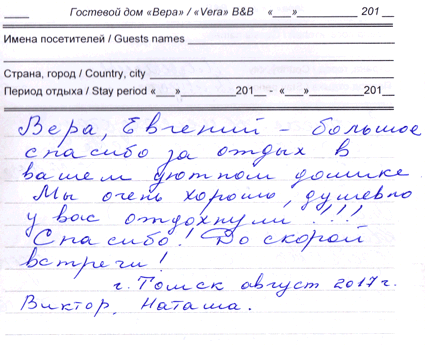 ____ Гостевой дом «Вера» / «Vera» B&B «___»__________ 201 __
Имена посетителей / Guests names
Страна, город / Country, city
Период отдыха / Stay period «___»_________201__ - «___»_________201__
Вера, Евгений - большое
спасибо за отдых в
вашем уютном домике.
Мы очень хорошо, душевно
у вас отдохнули!!!
Спасибо! До скорой
встречи!
г. Томск август 2017г.
Виктор, Наташа.